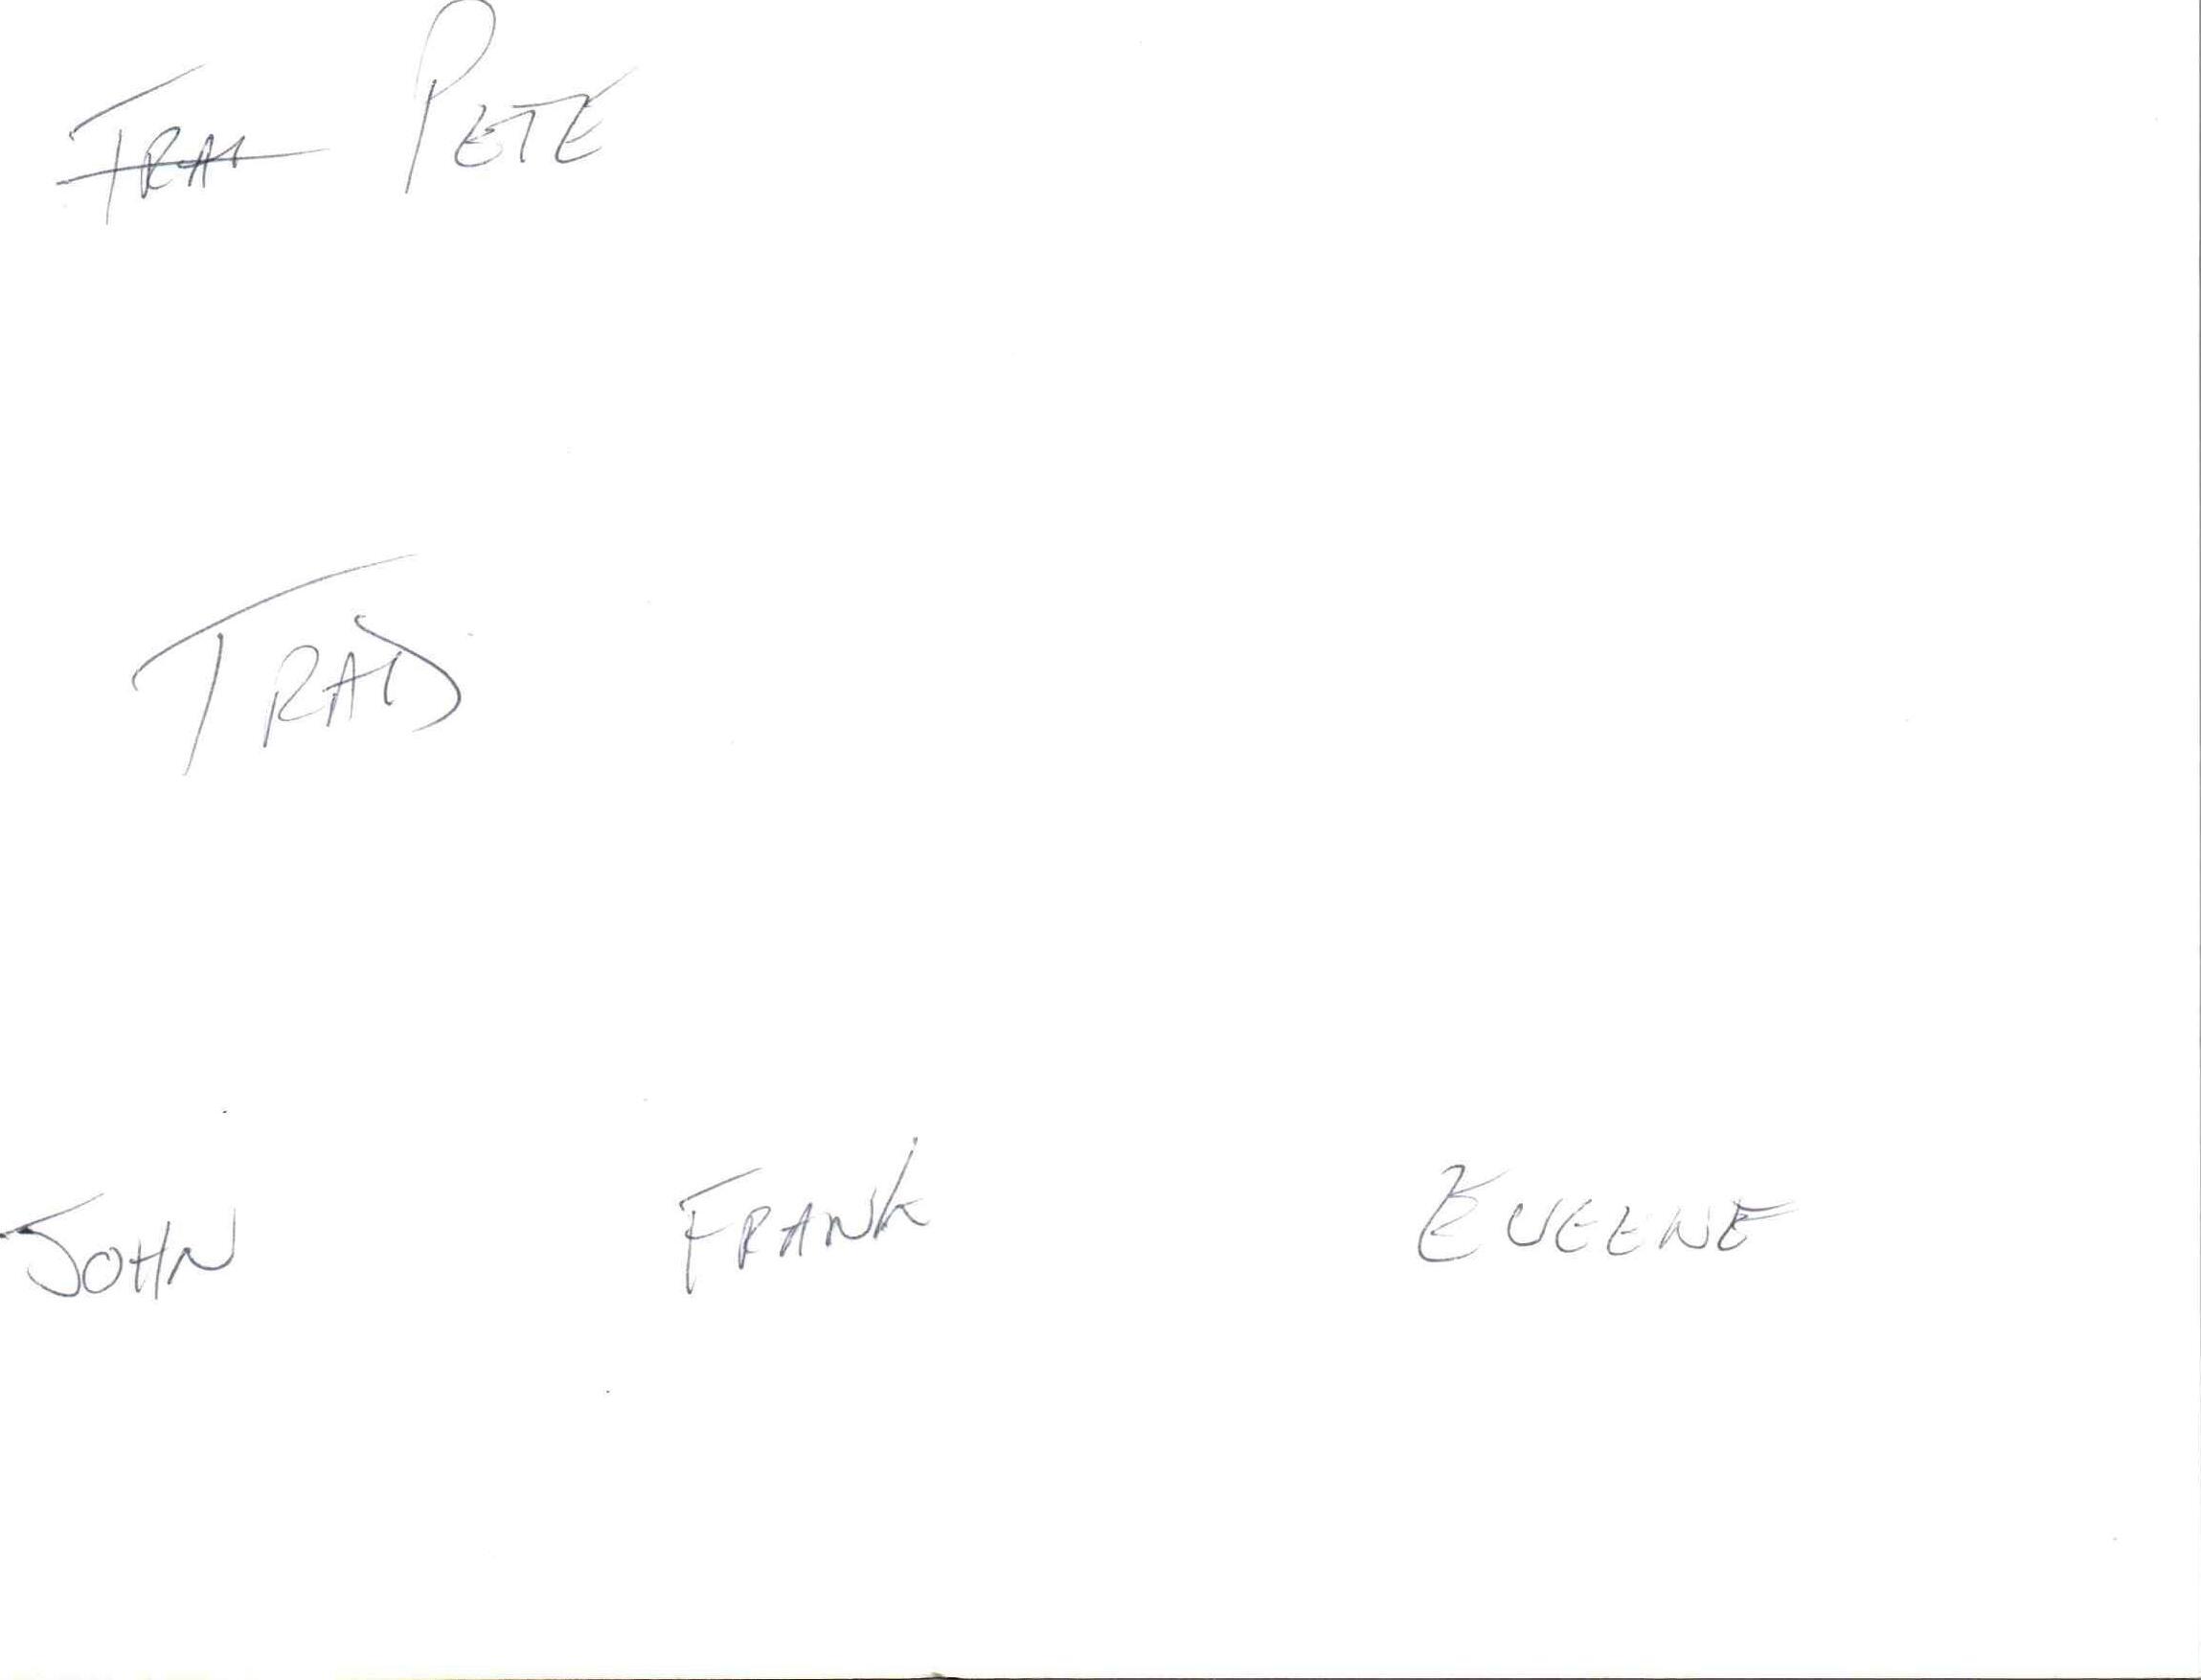 PETE
TRAD
JOHN FRANK EUGENE